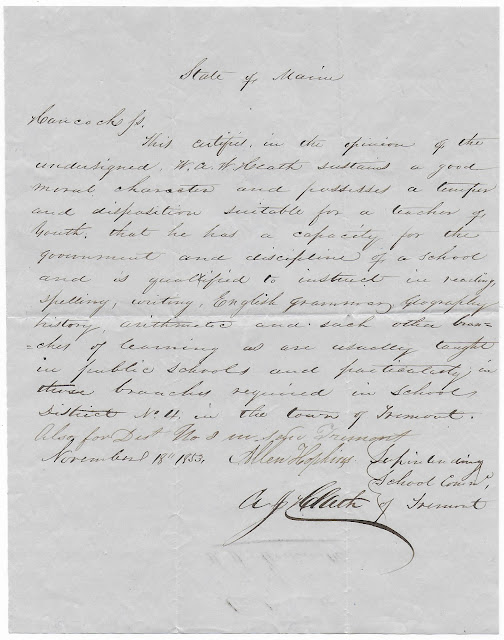 State of Maine
Hancock ss.
This certifies, in the opinion of the
undersigned, W. A. W Heath sustans a good
moral character and possesses a temper
and disposition suitable for a teacher of
Youth, that he has a capacity for the
government and discipline of a School
and is qualified to instruct in reading,
spelling, writing, English grammar, Geography
history, arithmetic and such other bran=
=ches of learning as are usually taught
in public schools and particularly in
those branches required in School
District No 11, in the town of Tremont.
Also for Dist No 2 in Tremont
November 18" 1853, Allen Hopkins Superintending
School Comm.
A J Heath of Tremont